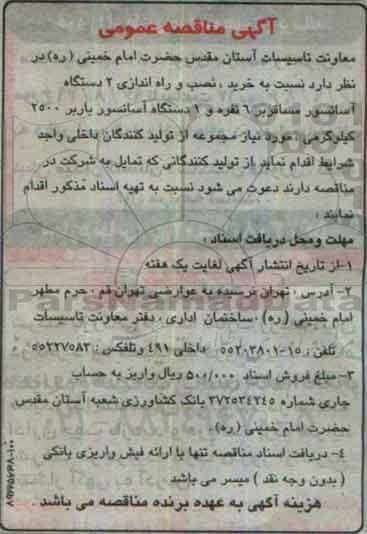 آگهی مناقصه عمومی
معاونت تاسیسات آستان مقدس حضرت امام خمینی (ره) در
نظر دارد نسبت به خرید ، نصب و راه اندازی ۲ دستگاه
آسانسور مسافربر ۶ نفره و ۱ دستگاه آسانسور باربر ۲۵۰۰
کیلوگرمی ، مورد نیاز مجموعه از تولید کنندگان داخلی واجد
شرایط اقدام نماید از تولید کنندگانی که تمایل به شرکت در
مناقصه دارند دعوت می شود نسبت به تهیه اسناد مذکور اقدام
نمایند :
مهلت ومحل دریافت اسناد :
۱-از تاریخ انتشار آگهی لغایت یک هفته
۲- آدرس : تهران نرسیده به عوارضی تهران قم ، حرم مطهر
امام خمینی (ره) ،ساختمان اداری ، دفتر معاونت تاسیسات
تلفن : ۱۵-۵۵۲۰۳۸۰۱ داخلی ۴۹۱ وتلفکس : ۵۵۲۲۷۵۸۳
۳- مبلغ فروش اسناد ۵۰۰/۰۰۰ ریال واریز به حساب
جاری شماره ۳۷۲۵۳۴۲۴۵ بانک کشاورزی شعبه آستان مقدس
حضرت امام خمینی (ره).
۴- دریافت اسناد مناقصه تنها با ارائه فیش واریزی بانکی
( بدون وجه نقد ) میسر می باشد
هزینه آگهی به عهده برنده مناقصه می باشد .
ParsNamadData